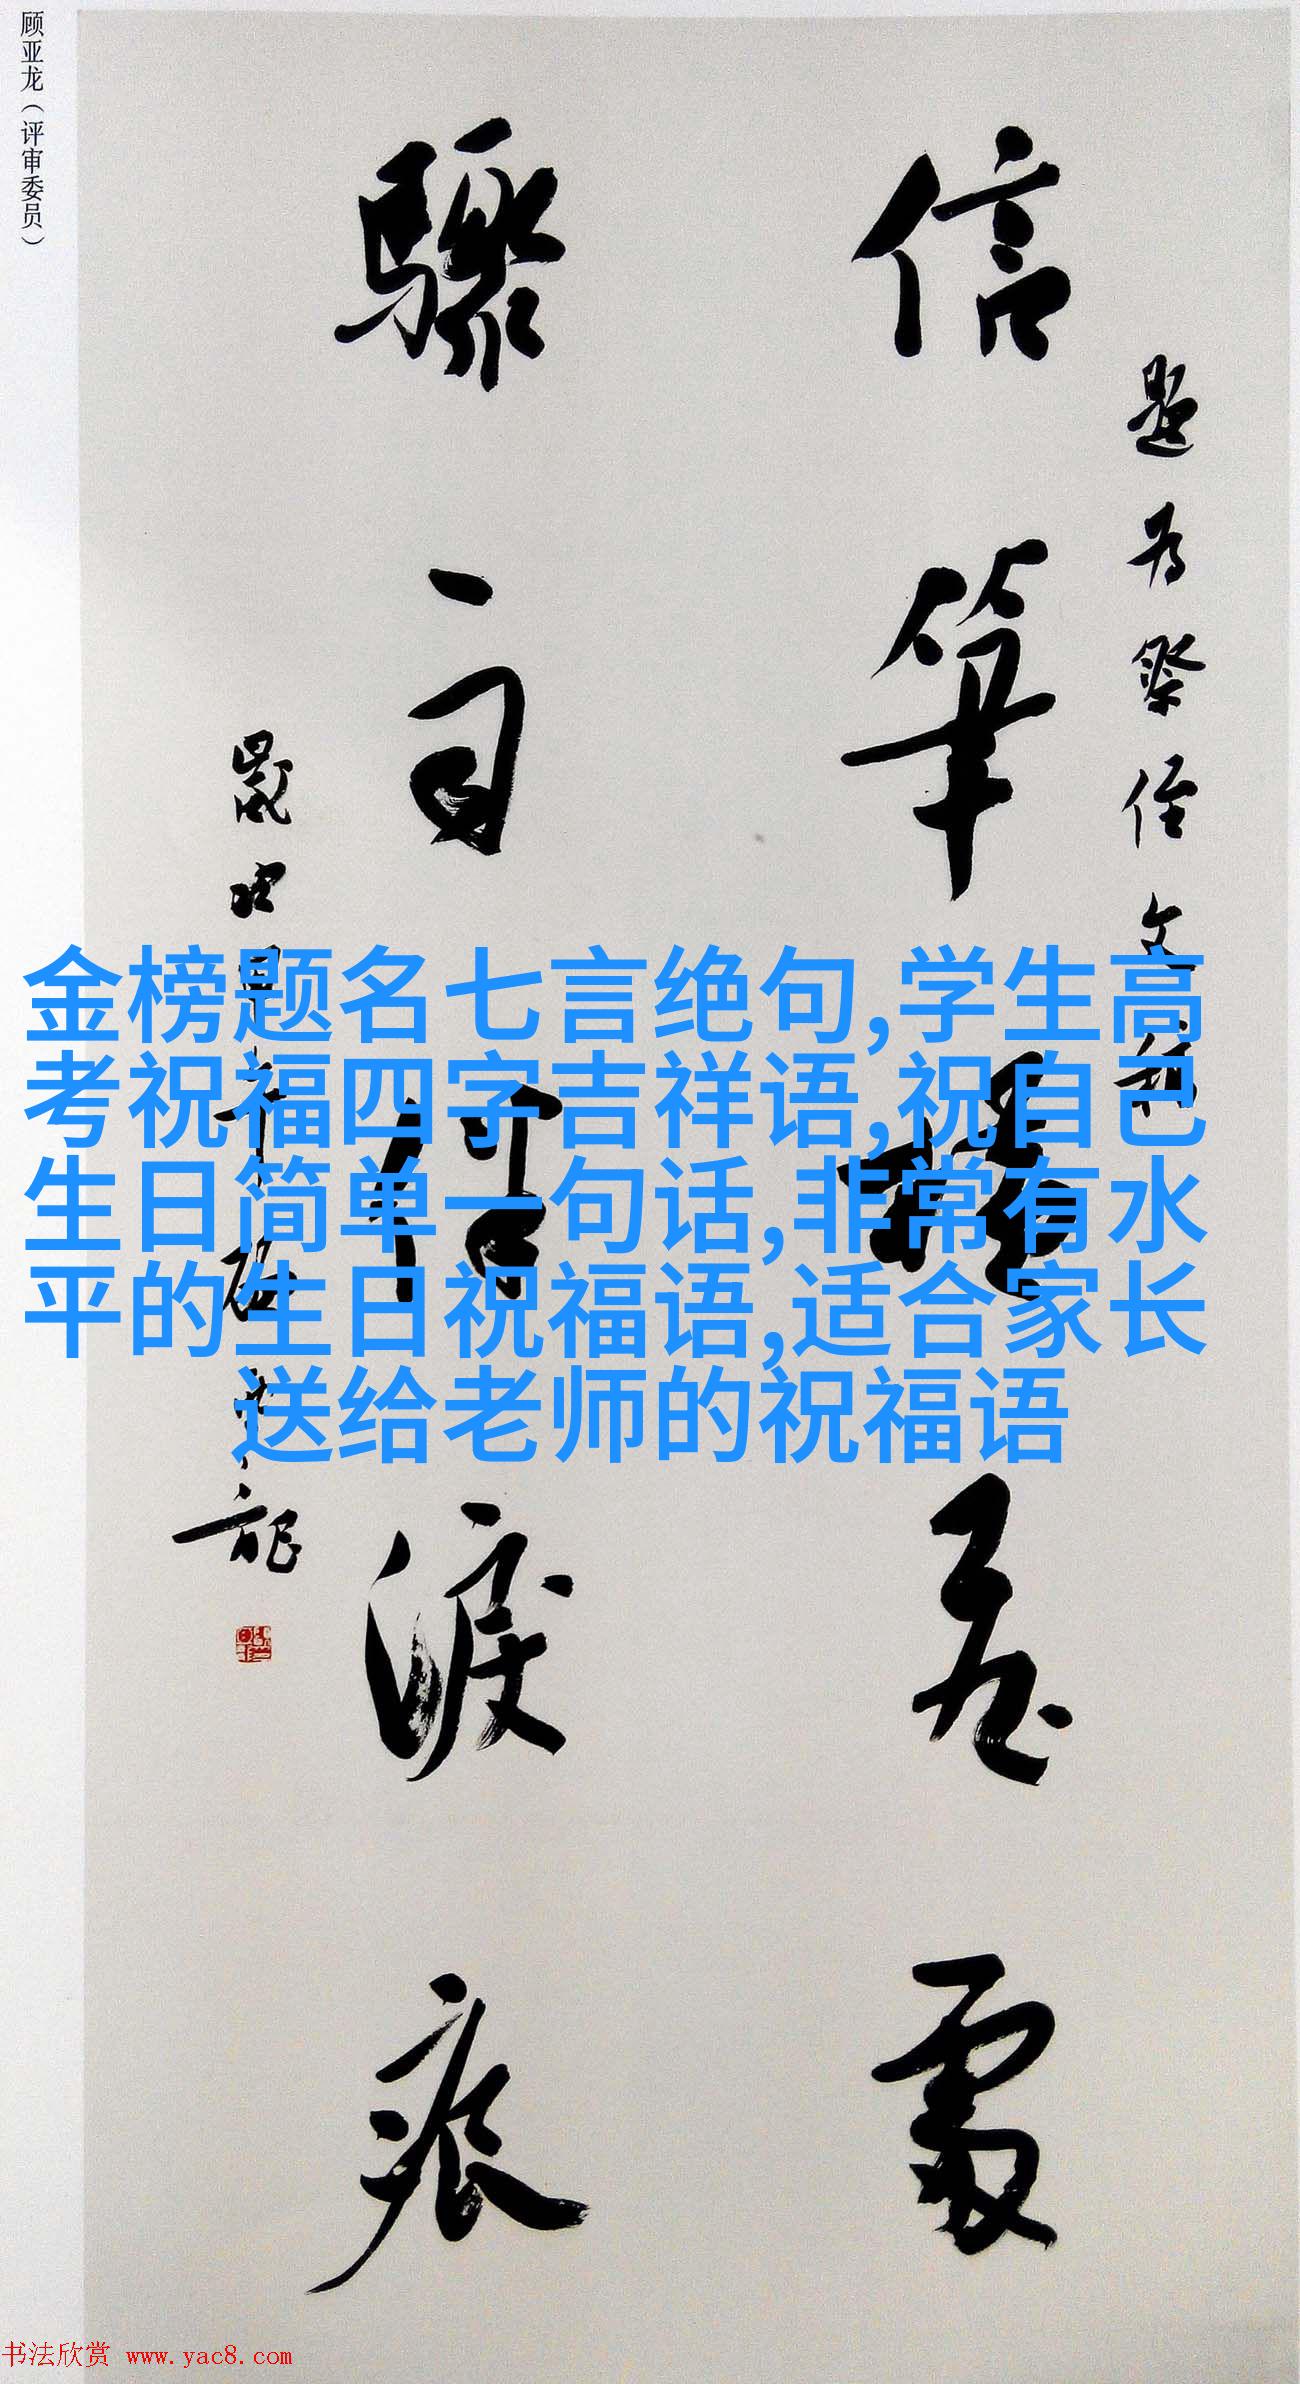 顾亚龙（评审委员）
题为祭侄文稿
信筆處
驟淚痕
歲次龍
金榜题名七言绝句,学生高
考祝福四字吉祥语,祝自己
生日简单一句话,非常有水
平的生日祝福语,适合家长
送给老师的祝福语
书法欣赏 www.yac8.com